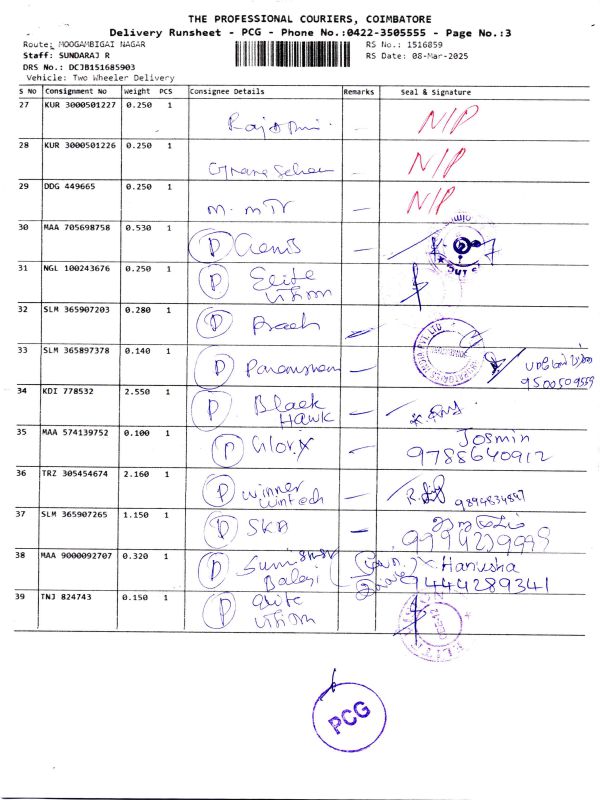 THE PROFESSIONAL COURIERS, COIMBATORE
Delivery Runsheet - PCG - Phone No.:0422-3505555 - Page No.:3
Route: MOOGAMBIGAI NAGAR RS No.: 1516859
Staff: SUNDARAJ R RS Date: 08-Mar-2025
DRS No.: DCJB151685903
Vehicle: Two Wheeler Delivery
S No Consignment No Weight PCS Consignee Details Remarks Seal & Signature
27 KUR 3000501227 0.250 1 N/P
28 KUR 3000501226 0.250 1 N/P
29 DDG 449665 0.250 1 M. MTR N/P
30 MAA 705698758 0.530 1 D
31 NGL 100243676 0.250 1 D Elite
Vision
32 SLM 365907203 0.280 1 D
33 SLM 365897378 0.140 1 D
9500509559
34 KDI 778532 2.550 1 D Black
Hawk
35 MAA 574139752 0.100 1 D Josmin
9788640912
36 TRZ 305454674 2.160 1 D winner
wintech 9894834897
37 SLM 365907265 1.150 1 D SKA
38 MAA 9000092707 0.320 1 D Hanusha
Balaji 9444289341
39 TNJ 824743 0.150 1 D Elite
Vision
PCG